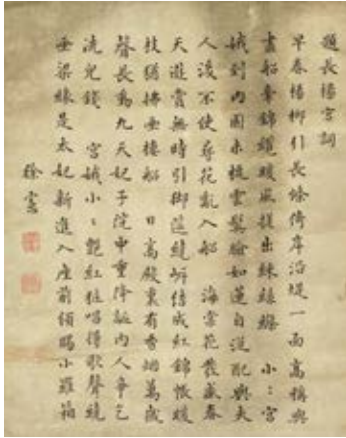 題長楊宮詞
早春楊柳引長條倚岸沿堤一面高稱與
畫船牽錦纜暖風搓出綵絲絛 小〻宮
娥到內園未梳雲鬢臉如蓮自從配與夫
人後不使尋花亂入船 海棠花發盛春
天遊賞無時引御筵繞岸結成紅錦帳暖
枝猶拂畫樓船 日高殿裏有香烟萬歲
聲長動九天妃子院中重降誕內人爭乞
洗兒錢 宮娥小〻艷紅粧唱得歌聲繞
畫梁緣是太妃新進入座前頒賜小羅箱
徐